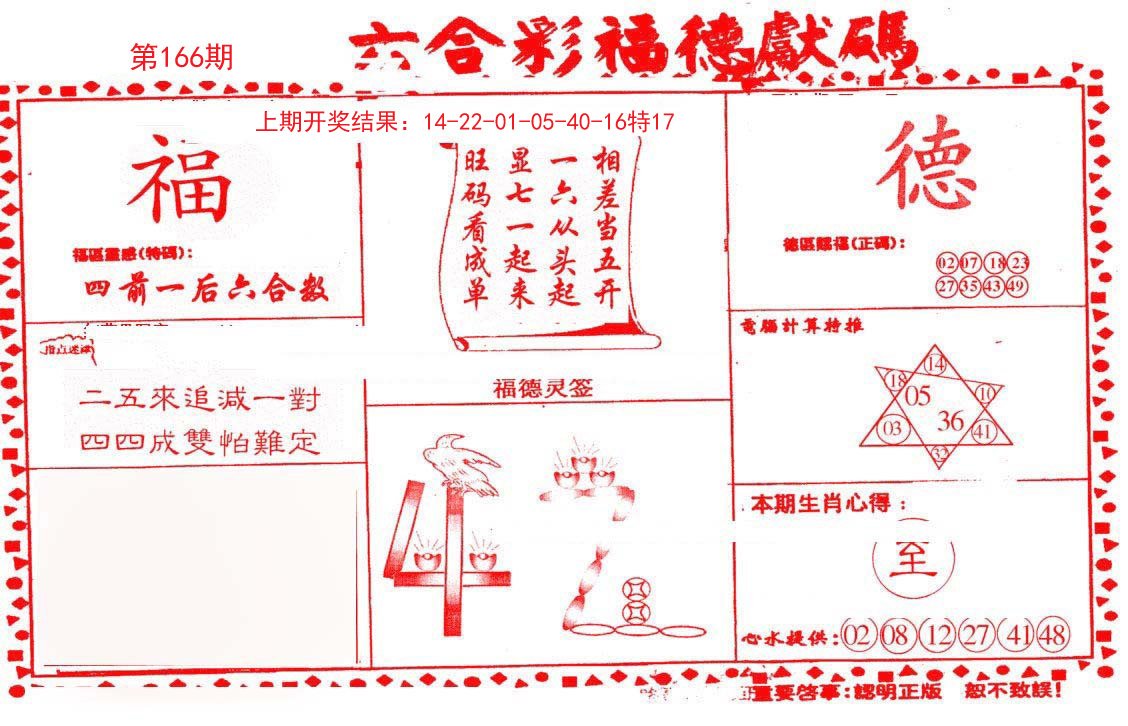 六合彩福德獻碼
第166期
上期开奖结果：14-22-01-05-40-16特17
福
福區靈感(特碼)：
四前一后六合数
指点迷津
二五來追減一對
四四成雙怕難定
相差当五开
一六从头起
显七一起来
旺码看成单
福德灵签
42
德
德區賜福(正碼)：
02 07 18 23
27 35 43 49
電腦計算特推
14
18 05 10
03 36 41
32
本期生肖心得：
至
心水提供：02 08 12 27 41 48
重要啓事：認明正版 恕不致誤！